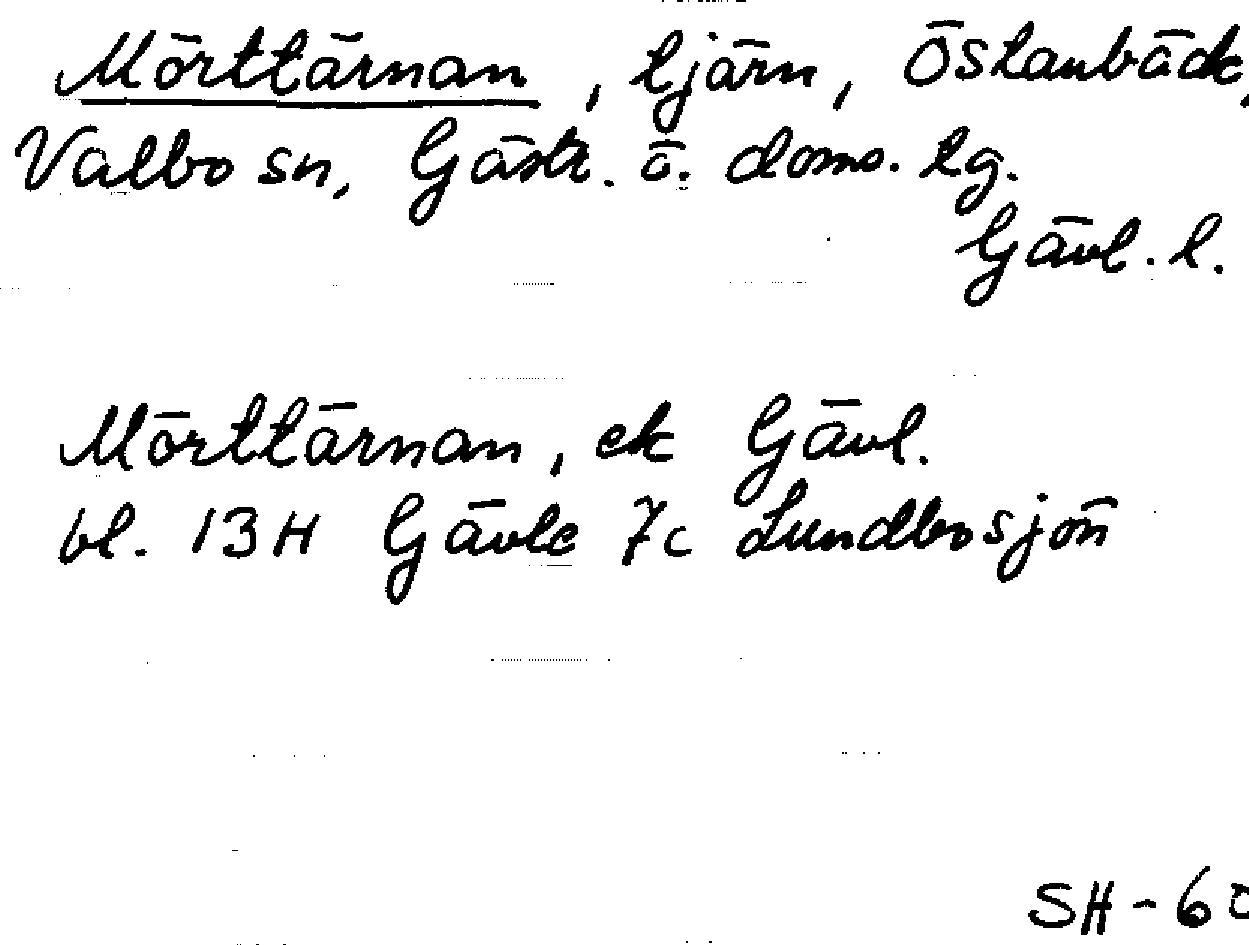 Mörttärnan, tjärn, Östanbäck,
Valbo sn, Gästr. ö. doms. lg.
Gävl. l.
Mörttärnan, ek Gävl.
bl. 13H Gävle 7c Lundbosjön
SH-60